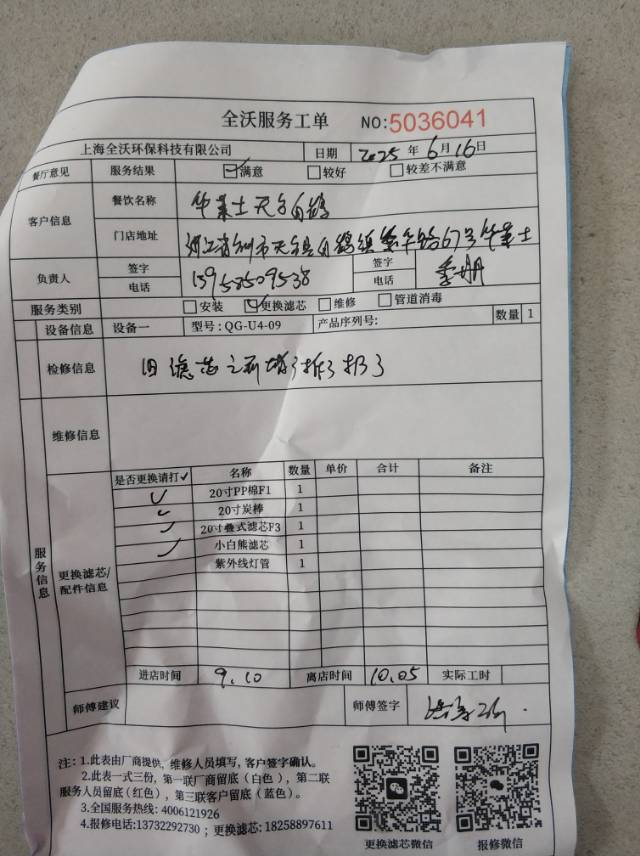 全沃服务工单 NO:5036041
上海全沃环保科技有限公司 日期 2025年6月16日
餐厅意见 服务结果 ☑满意 □较好 □较差不满意
客户信息 餐饮名称 华莱士天台白鹤
门店地址 浙江省 州市天台县白鹤镇 平路67号华莱士
负责人 签字 电话 签字 电话
服务类别 □安装 ☑更换滤芯 □维修 □管道消毒
设备信息 设备一 型号:QG-U4-09 产品序列号: 数量 1
检修信息 旧滤芯之前堵了拆了扔了
维修信息
服务信息
更换滤芯/配件信息
是否更换请打✓ 名称 数量 单价 合计 备注
✓ 20寸PP棉F1 1
✓ 20寸炭棒 1
✓ 20寸叠式滤芯F3 1
✓ 小白熊滤芯 1
紫外线灯管 1
进店时间 9.10 离店时间 10.05 实际工时
师傅建议 师傅签字
注: 1.此表由厂商提供, 维修人员填写, 客户签字确认。
2.此表一式三份, 第一联厂商留底(白色), 第二联
服务人员留底(红色), 第三联客户留底(蓝色)。
3.全国服务热线: 4006121926
4.报修电话:13732292730 ; 更换滤芯: 18258897611
更换滤芯微信 报修微信